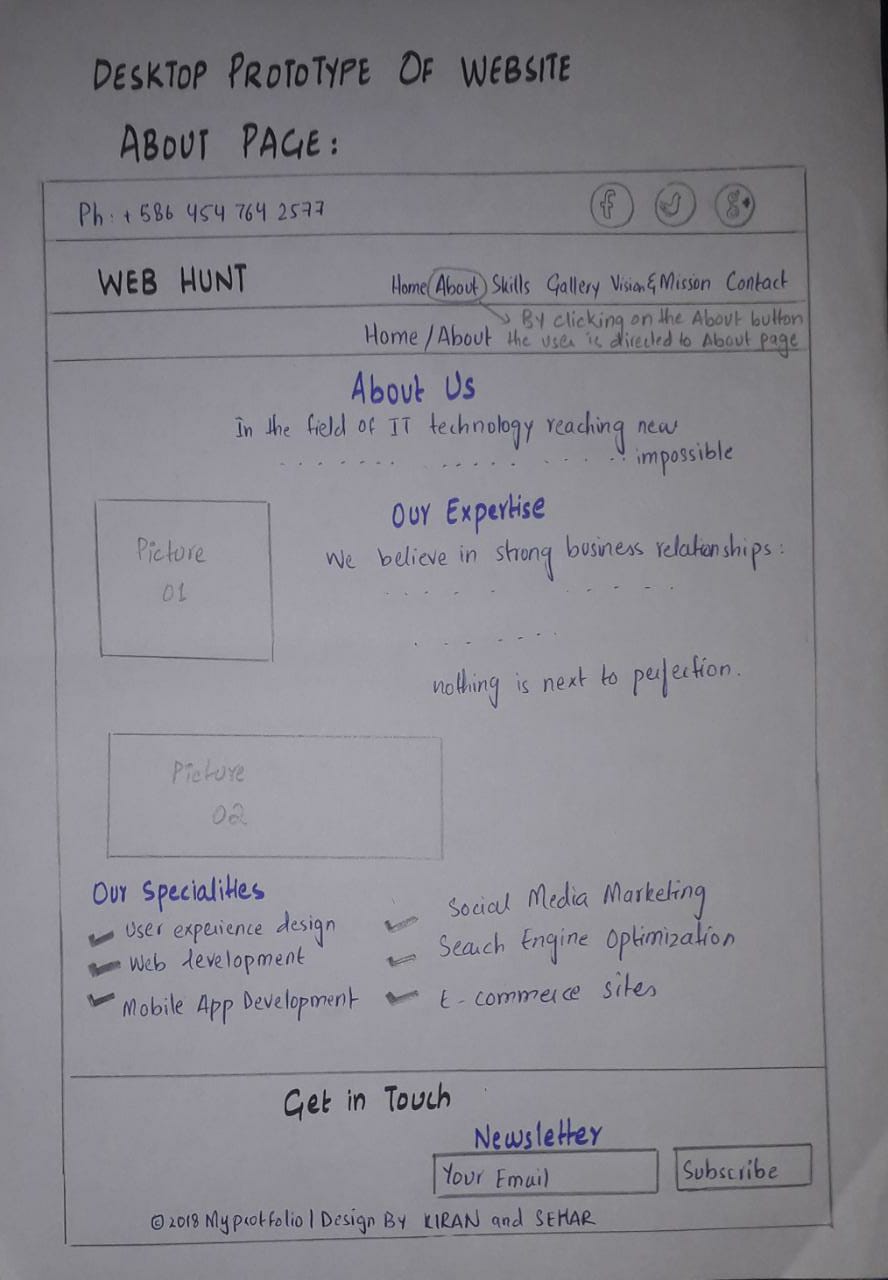 DESKTOP PROTOTYPE OF WEBSITE
ABOUT PAGE:
Ph: + 586 454 764 2577
f g+
WEB HUNT
Home About Skills Gallery Vision & Misson Contact
By clicking on the About button
Home / About the user is directed to About page
About Us
In the field of IT technology reaching new
impossible
Our Expertise
We believe in strong business relationships:
Picture
01
nothing is next to perfection.
Picture
02
Our Specialities
User experience design
Web development
Mobile App Development
Social Media Marketing
Search Engine Optimization
E-commerce sites
Get in Touch
Newsletter
Your Email Subscribe
©2018 Myprotfolio | Design By KIRAN and SEHAR